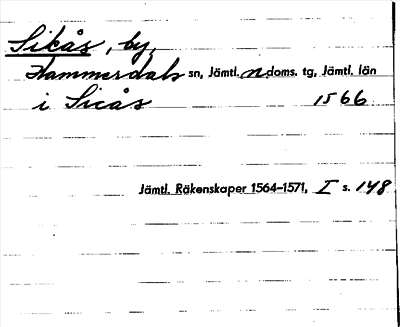 Sikås, by,
Hammerdals sn, Jämtl. n. doms. tg, Jämtl. län
i Sicås 1566
Jämtl. Räkenskaper 1564–1571, I s. 148